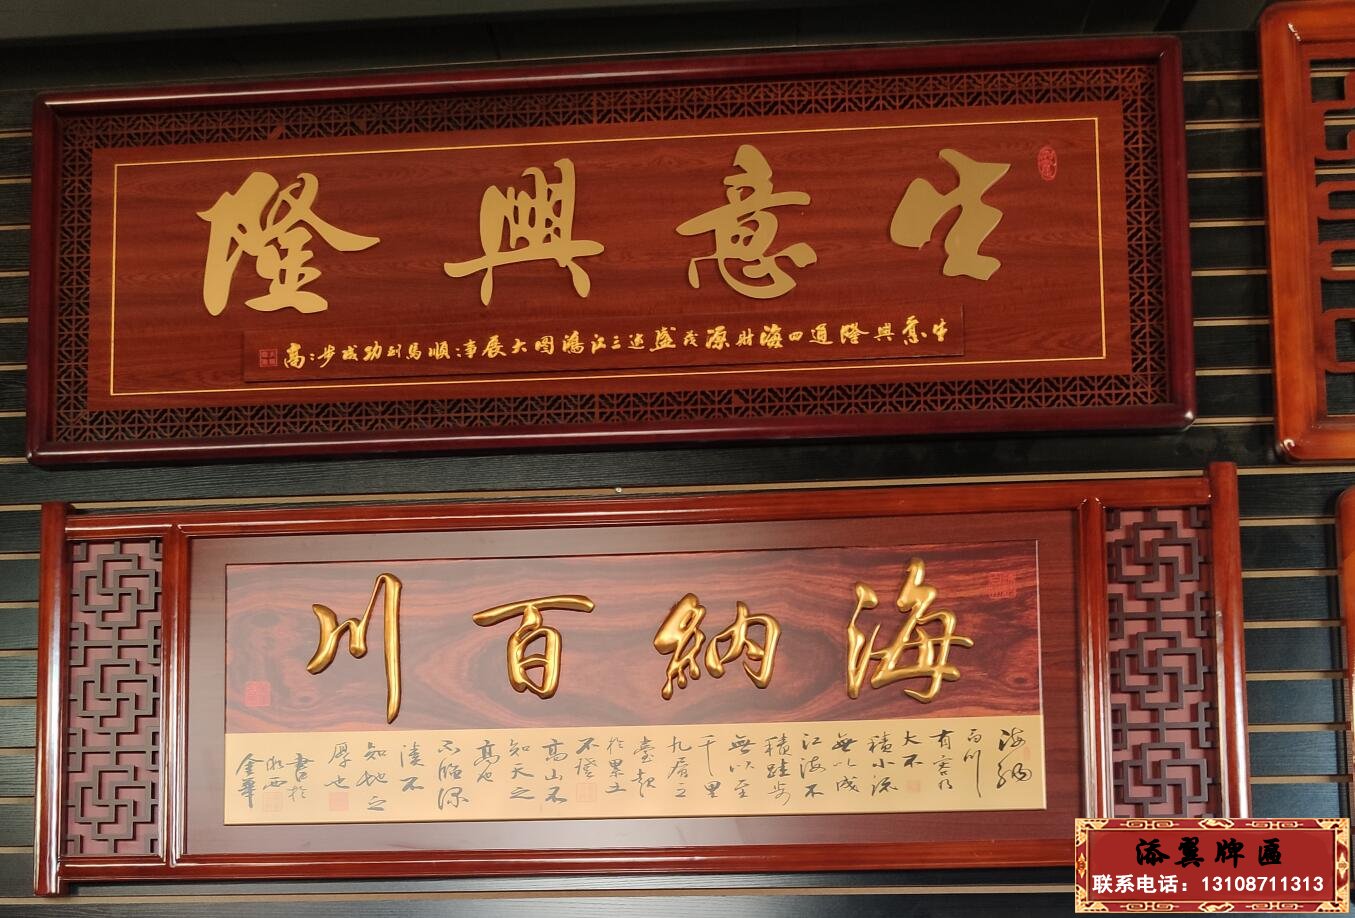 生意興隆
生意興隆通四海財源茂盛达三江鴻图大展事:順馬到功成步:高
海納百川
海納
百川
有容乃
大不
積小流
無以成
江海不
積跬步
無以至
千里
九層之
臺起
於累土
不登
高山不
知天之
高也
不臨深
溪不
知地之
厚也
書於
金華
添翼牌匾
联系电话：13108711313